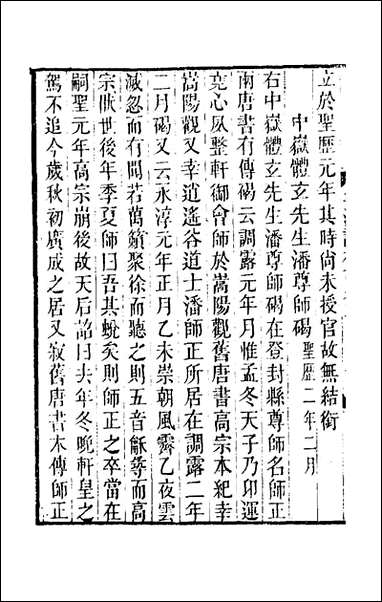 立於聖歷元年其時尚未授官故無結銜
中嶽體玄先生潘尊師碣聖歷二年二月
右中嶽體玄先生潘尊師碣在登封縣尊師名師正
兩唐書有傳碣云調露元年月惟孟冬天子乃卽運
堯心夙整軒御會師於嵩陽觀舊唐書高宗本紀幸
嵩陽觀又幸逍遙谷道士潘師正所居在調露二年
二月碣又云永淳元年正月乙未崇朝風霽乙夜雲
滅忽而有聞若萬籟聚徐而聽之則五音龢等而高
宗厭世後年季夏師曰吾其蛻矣則師正之卒當在
嗣聖元年高宗崩後故天后詔曰去年冬晚軒皇之
駕不追今歲秋初廣成之居又寂舊唐書本傳師正